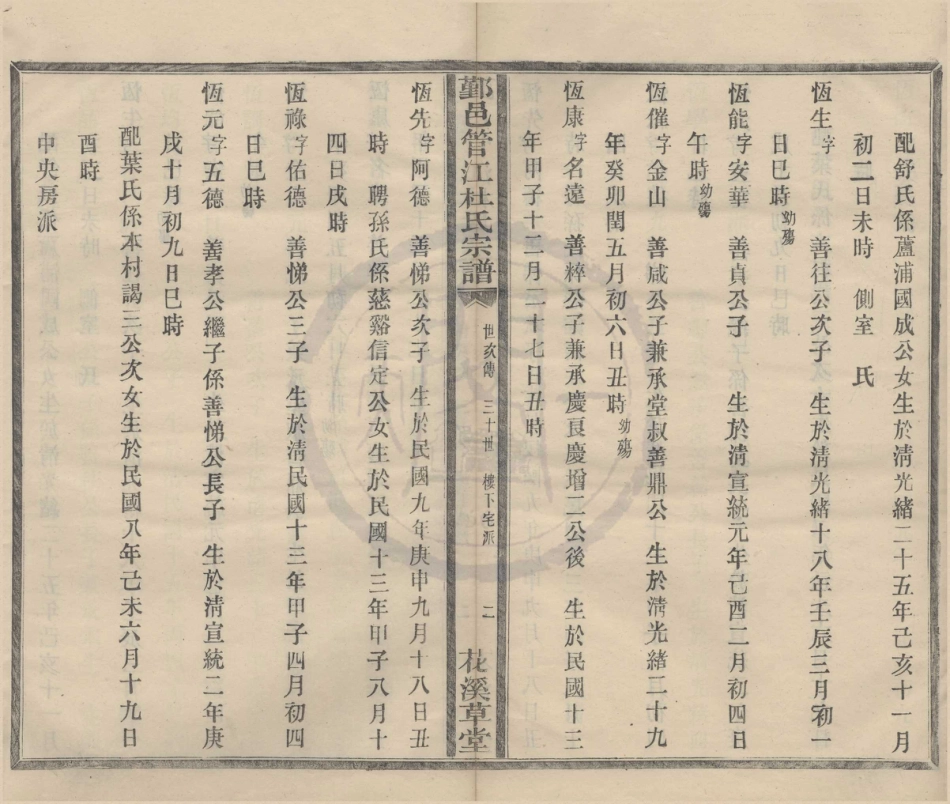 配舒氏係蘆浦國成公女生於清光緒二十五年己亥十一月
初二日未時 側室 氏
恆生字 善往公次子 生於清光緒十八年壬辰三月初一
日巳時幼殤
恆能字安華 善貞公子 生於清宣統元年己酉二月初四日
午時幼殤
恆催字金山 善咸公子兼承堂叔善鼎公 生於清光緒二十九
年癸卯閏五月初六日丑時幼殤
恆康字名遠 善粹公子兼承慶良慶增二公後 生於民國十三
年甲子十二月二十七日丑時
鄞邑管江杜氏宗譜 世次傳 三十世 樓下宅派 二 花溪草堂
恆先字阿德 善悌公次子 生於民國九年庚申九月十八日丑
時 聘孫氏係慈谿信定公女生於民國十三年甲子八月十
四日戌時
恆祿字佑德 善悌公三子 生於清民國十三年甲子四月初四
日巳時
恆元字五德 善孝公繼子係善悌公長子 生於清宣統二年庚
戌十月初九日巳時
配葉氏係本村謁三公次女生於民國八年己未六月十九日
酉時
中央房派